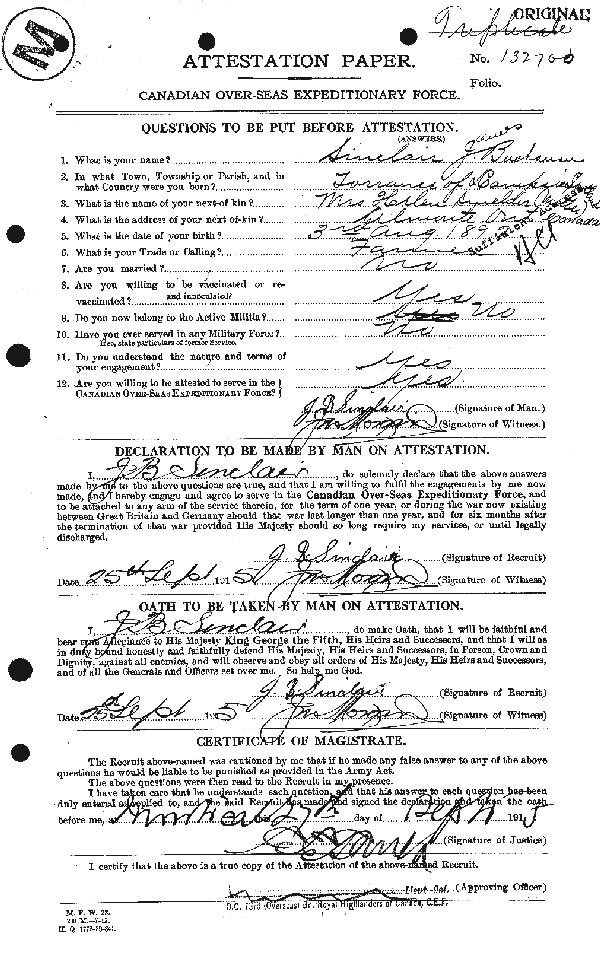 M
ORIGINAL
Triplicate
No. 132700
ATTESTATION PAPER.
Folio.
CANADIAN OVER-SEAS EXPEDITIONARY FORCE.
QUESTIONS TO BE PUT BEFORE ATTESTATION.
(ANSWERS)
1. What is your name? Sinclair James
2. In what Town, Township or Parish, and in
what Country were you born? Torrance of
3. What is the name of your next-of-kin? Mrs
4. What is the address of your next-of-kin? Ont Canada
5. What is the date of your birth? 3rd Aug
6. What is your Trade or Calling?
7. Are you married? No
8. Are you willing to be vaccinated or re-
vaccinated? and innoculated? Yes
9. Do you now belong to the Active Militia? No
10. Have you ever served in any Military Force? No
If so, state particulars of former Service.
11. Do you understand the nature and terms of
your engagement? Yes
12. Are you willing to be attested to serve in the
CANADIAN OVER-SEAS EXPEDITIONARY FORCE? Yes
J B Sinclair (Signature of Man.)
(Signature of Witness.)
DECLARATION TO BE MADE BY MAN ON ATTESTATION.
I, J B Sinclair, do solemnly declare that the above answers
made by me to the above questions are true, and that I am willing to fulfil the engagements by me now
made, and I hereby engage and agree to serve in the Canadian Over-Seas Expeditionary Force, and
to be attached to any arm of the service therein, for the term of one year, or during the war now existing
between Great Britain and Germany should that war last longer than one year, and for six months after
the termination of that war provided His Majesty should so long require my services, or until legally
discharged.
J B Sinclair (Signature of Recruit)
Date 25th Sept 1915 (Signature of Witness)
OATH TO BE TAKEN BY MAN ON ATTESTATION.
I, J B Sinclair, do make Oath, that I will be faithful and
bear true Allegiance to His Majesty King George the Fifth, His Heirs and Successors, and that I will as
in duty bound honestly and faithfully defend His Majesty, His Heirs and Successors, in Person, Crown and
Dignity, against all enemies, and will observe and obey all orders of His Majesty, His Heirs and Successors,
and of all the Generals and Officers set over me. So help me God.
J B Sinclair (Signature of Recruit)
Date 25th Sept 1915 (Signature of Witness)
CERTIFICATE OF MAGISTRATE.
The Recruit above-named was cautioned by me that if he made any false answer to any of the above
questions he would be liable to be punished as provided in the Army Act.
The above questions were then read to the Recruit in my presence.
I have taken care that he understands each question, and that his answer to each question has been
duly entered as replied to, and the said Recruit has made and signed the declaration and taken the oath
before me, at Montreal 27th day of Sept 1915
(Signature of Justice)
I certify that the above is a true copy of the Attestation of the above-named Recruit.
Lieut-Col. (Approving Officer)
O.C. 73rd (Overseas) Bn. Royal Highlanders of Canada, C.E.F.
M. F. W. 23.